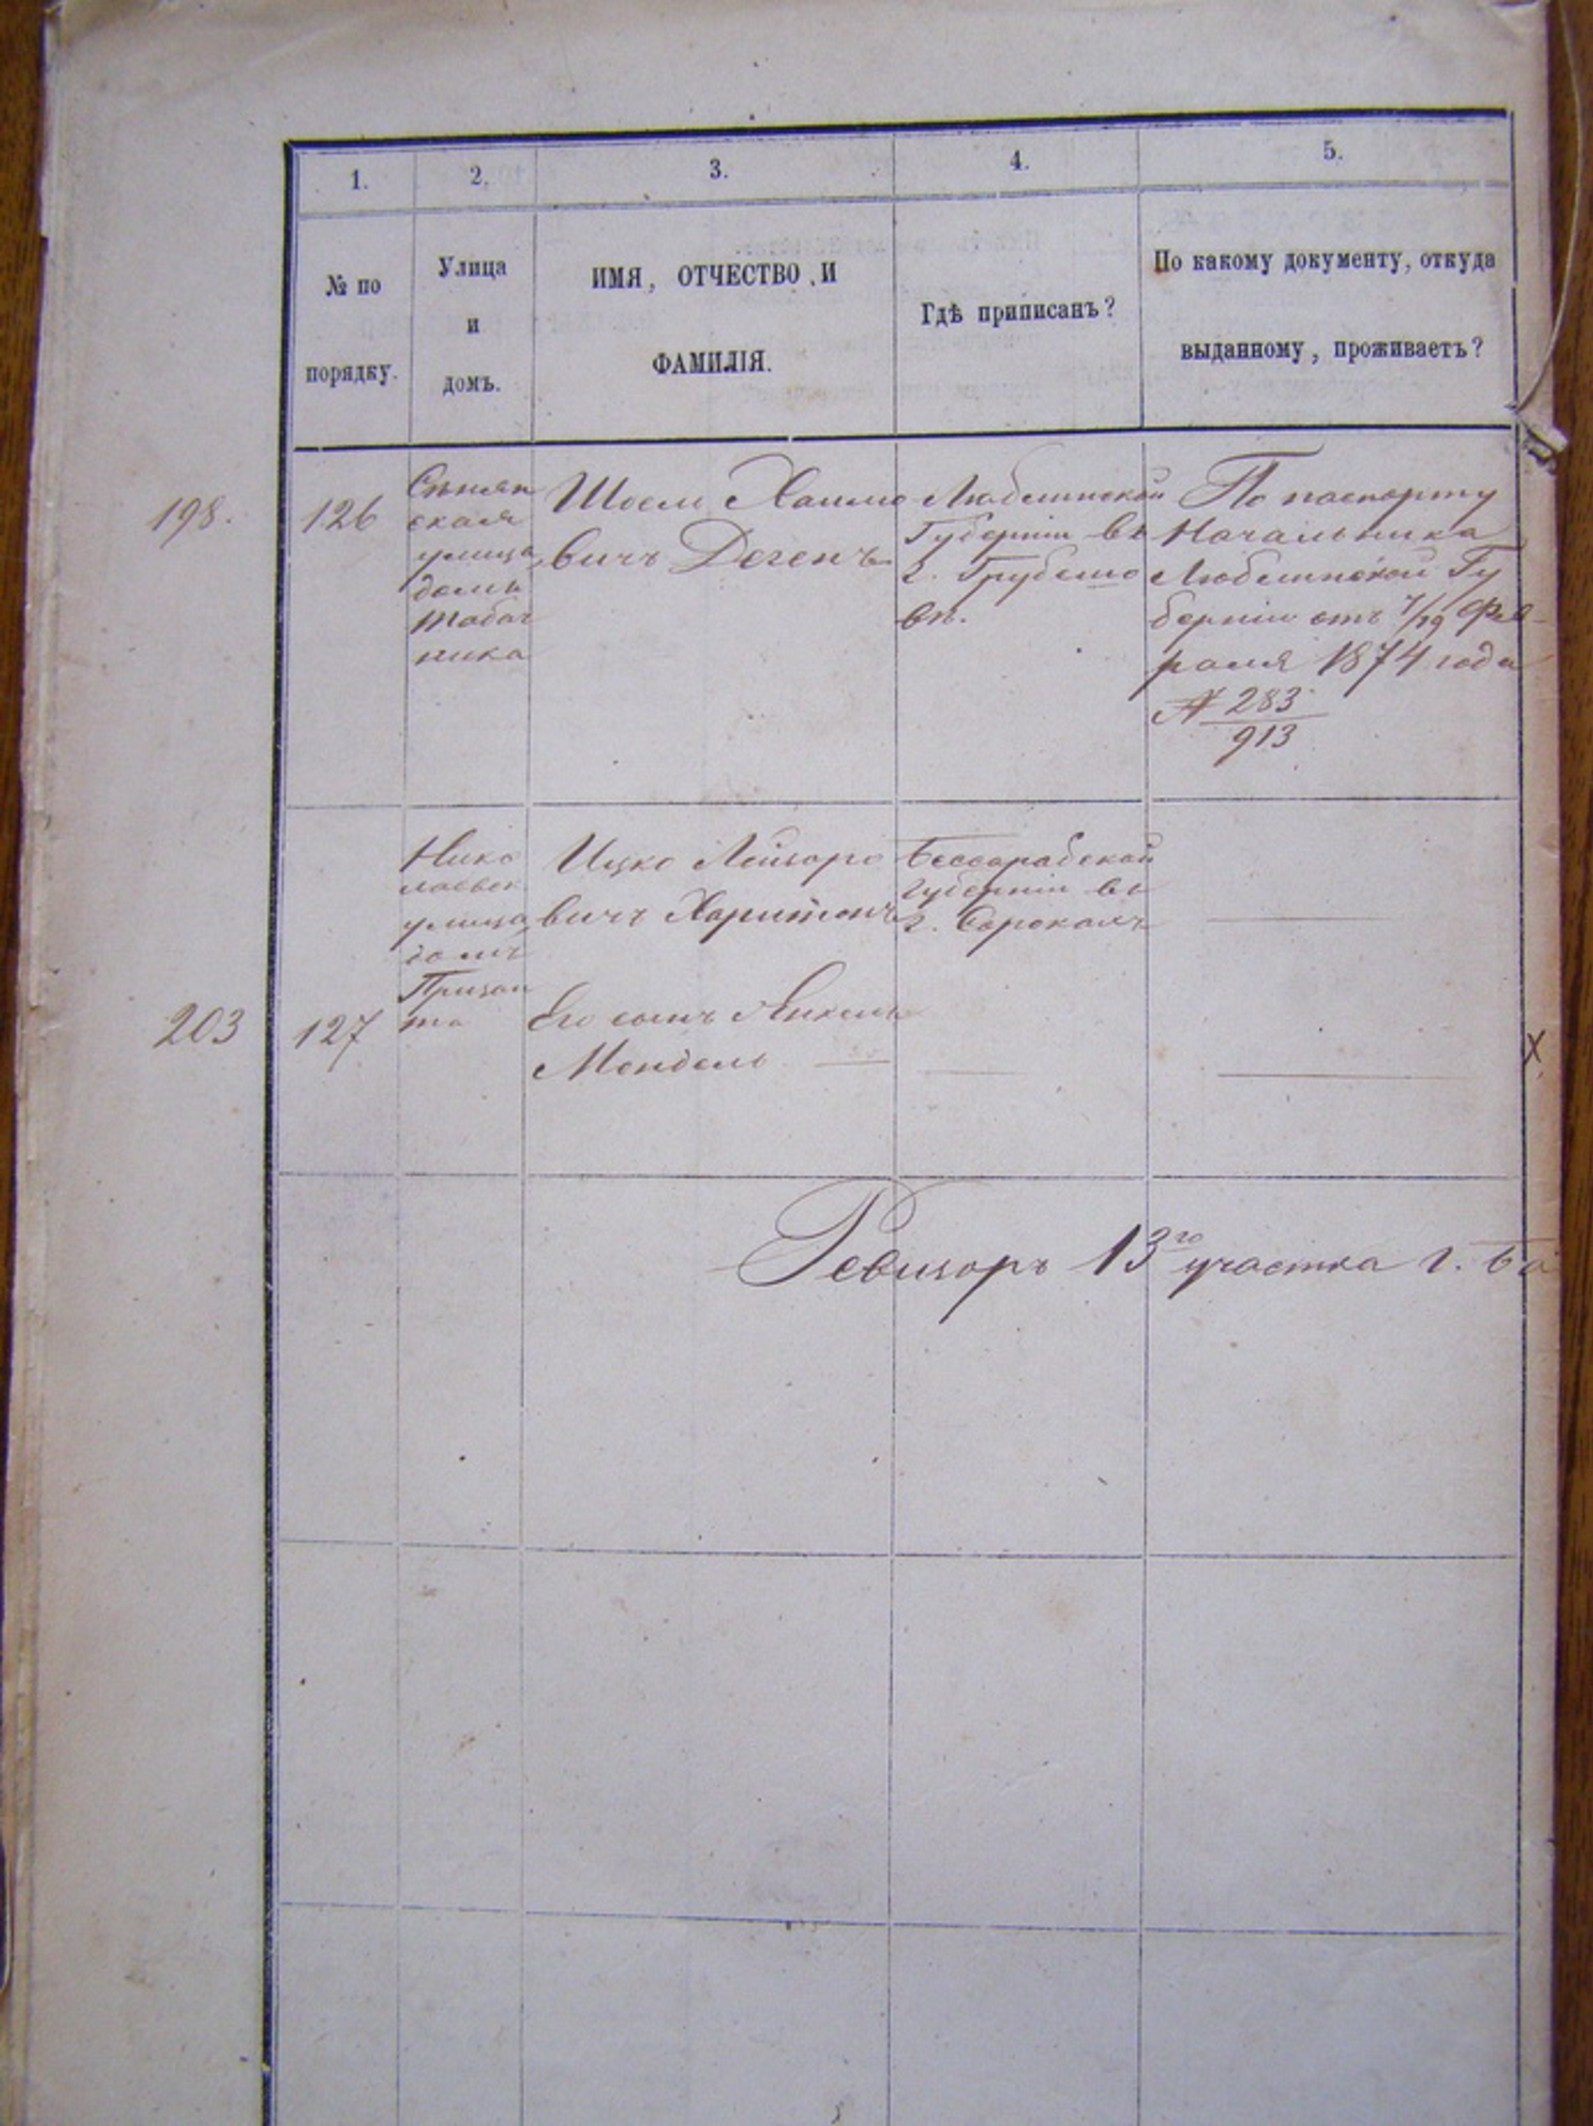 1. 2. 3. 4. 5.
№ по
порядку.
Улица
и
домъ.
ИМЯ, ОТЧЕСТВО И
ФАМИЛІЯ.
Гдѣ приписанъ?
По какому документу, откуда
выданному, проживаетъ?
198.
126
ская
улица
домъ
Табач
ника
Шоел Хаимо
вичъ Дегенъ
Люблинской
Губерніи въ
г. Грубешо
вѣ.
По паспорту
Начальника
Люблинской Гу
берніи отъ 7/19 Фев
раля 1874 года
№ 283
913
203
127
Нико
лаевск
улица
домъ
Ицко Лейзоро
вичъ Харитонъ
Его сынъ Янкель
Мендель
Бессарабской
Губерніи въ
г. Сорокахъ
X
Ревизоръ 13го участка г.